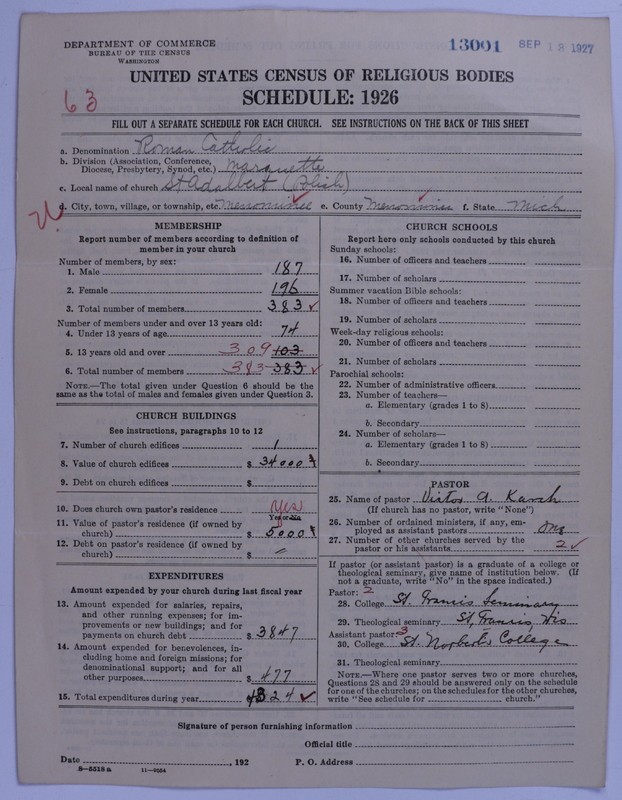 DEPARTMENT OF COMMERCE
BUREAU OF THE CENSUS
WASHINGTON
13001
SEP 13 1927
UNITED STATES CENSUS OF RELIGIOUS BODIES
63
SCHEDULE: 1926
FILL OUT A SEPARATE SCHEDULE FOR EACH CHURCH. SEE INSTRUCTIONS ON THE BACK OF THIS SHEET
a. Denomination Roman Catholic
b. Division (Association, Conference, Diocese, Presbytery, Synod, etc.) Marquette
c. Local name of church St Adalbert (Polish)
d. City, town, village, or township, etc. Menominee e. County Menominee f. State Mich
MEMBERSHIP
Report number of members according to definition of
member in your church
Number of members, by sex:
1. Male 187
2. Female 196
3. Total number of members 383
Number of members under and over 13 years old:
4. Under 13 years of age 74
5. 13 years old and over 309 103
6. Total number of members 383 383
NOTE.—The total given under Question 6 should be the
same as the total of males and females given under Question 3.
CHURCH BUILDINGS
See instructions, paragraphs 10 to 12
7. Number of church edifices 1
8. Value of church edifices $ 34000
9. Debt on church edifices $
10. Does church own pastor's residence Yes
Yes or No
11. Value of pastor's residence (if owned by
church) $ 5000
12. Debt on pastor's residence (if owned by
church) $ —
EXPENDITURES
Amount expended by your church during last fiscal year
13. Amount expended for salaries, repairs,
and other running expenses; for im-
provements or new buildings; and for
payments on church debt $ 3847
14. Amount expended for benevolences, in-
cluding home and foreign missions; for
denominational support; and for all
other purposes $ 477
15. Total expenditures during year 4324
CHURCH SCHOOLS
Report here only schools conducted by this church
Sunday schools:
16. Number of officers and teachers
17. Number of scholars
Summer vacation Bible schools:
18. Number of officers and teachers
19. Number of scholars
Week-day religious schools:
20. Number of officers and teachers
21. Number of scholars
Parochial schools:
22. Number of administrative officers
23. Number of teachers—
a. Elementary (grades 1 to 8)
b. Secondary
24. Number of scholars—
a. Elementary (grades 1 to 8)
b. Secondary
PASTOR
25. Name of pastor Victor A. Karch
(If church has no pastor, write "None")
26. Number of ordained ministers, if any, em-
ployed as assistant pastors One
27. Number of other churches served by the
pastor or his assistants 2
If pastor (or assistant pastor) is a graduate of a college or
theological seminary, give name of institution below. (If
not a graduate, write "No" in the space indicated.)
Pastor: 2
28. College St. Francis Seminary
29. Theological seminary St. Francis Wis
Assistant pastor: 3
30. College St. Norberts College
31. Theological seminary
NOTE.—Where one pastor serves two or more churches,
Questions 28 and 29 should be answered only on the schedule
for one of the churches; on the schedules for the other churches,
write "See schedule for church."
Signature of person furnishing information
Official title
Date , 192 P. O. Address
8—5518 a 11—9064